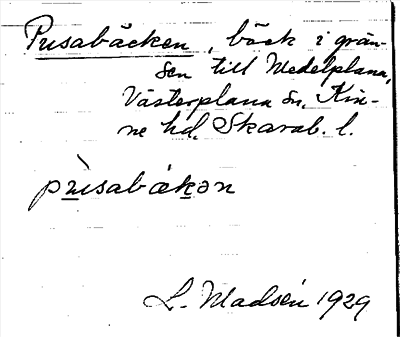 Pusabäcken, bäck i grän-
sen till Medelplana,
Västerplana sn, Kin-
ne hd, Skarab. l.
pùsabákən
L. Madsén 1929